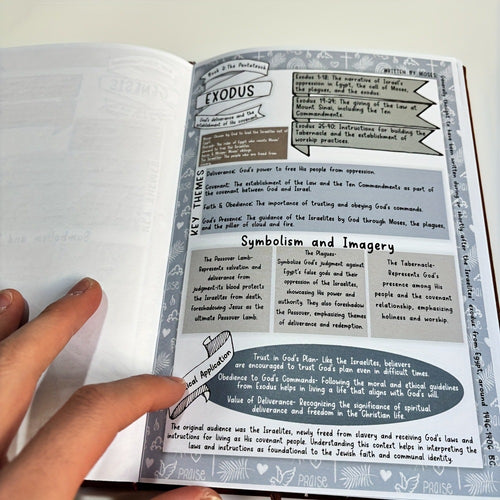 Book 2: The Pentateuch
WRITTEN BY MOSES
EXODUS
God's deliverance and the
establishment of His covenant
Exodus 1-18: The narrative of Israel's
oppression in Egypt, the call of Moses,
the plagues, and the exodus.
Exodus 19-24: The giving of the Law at
Mount Sinai, including the Ten
Commandments.
Exodus 25-40: Instructions for building the
Tabernacle and the establishment of
worship practices.
KEY THEMES
Deliverance: God's power to free His people from oppression.
Covenant: The establishment of the Law and the Ten Commandments as part of
the covenant between God and Israel.
Faith & Obedience: The importance of trusting and obeying God's commands.
God's Presence: The guidance of the Israelites by God through Moses, the plagues,
and the pillar of cloud and fire.
Symbolism and Imagery
The Passover Lamb-
Represents salvation and
deliverance from
judgment-its blood protects
the Israelites from death,
foreshadowing Jesus as the
ultimate Passover Lamb.
The Plagues-
Symbolize God's judgment against
Egypt's false gods and their
oppression of the Israelites,
showcasing His power and
authority. They also foreshadow
the Passover, emphasizing themes
of deliverance and redemption.
The Tabernacle-
Represents God's
presence among His
people and the covenant
relationship, emphasizing
holiness and worship.
Application
Trust in God's Plan- Like the Israelites, believers
are encouraged to trust God's plan even in difficult times.
Obedience to God's Commands- Following the moral and ethical guidelines
from Exodus helps in living a life that aligns with God's will.
Value of Deliverance- Recognizing the significance of spiritual
deliverance and freedom in the Christian life.
The original audience was the Israelites, newly freed from slavery and receiving God's laws and
instructions for living as His covenant people. Understanding this context helps in interpreting the
laws and instructions as foundational to the Jewish faith and communal identity.
PRAISE
PRAISE
GENESIS